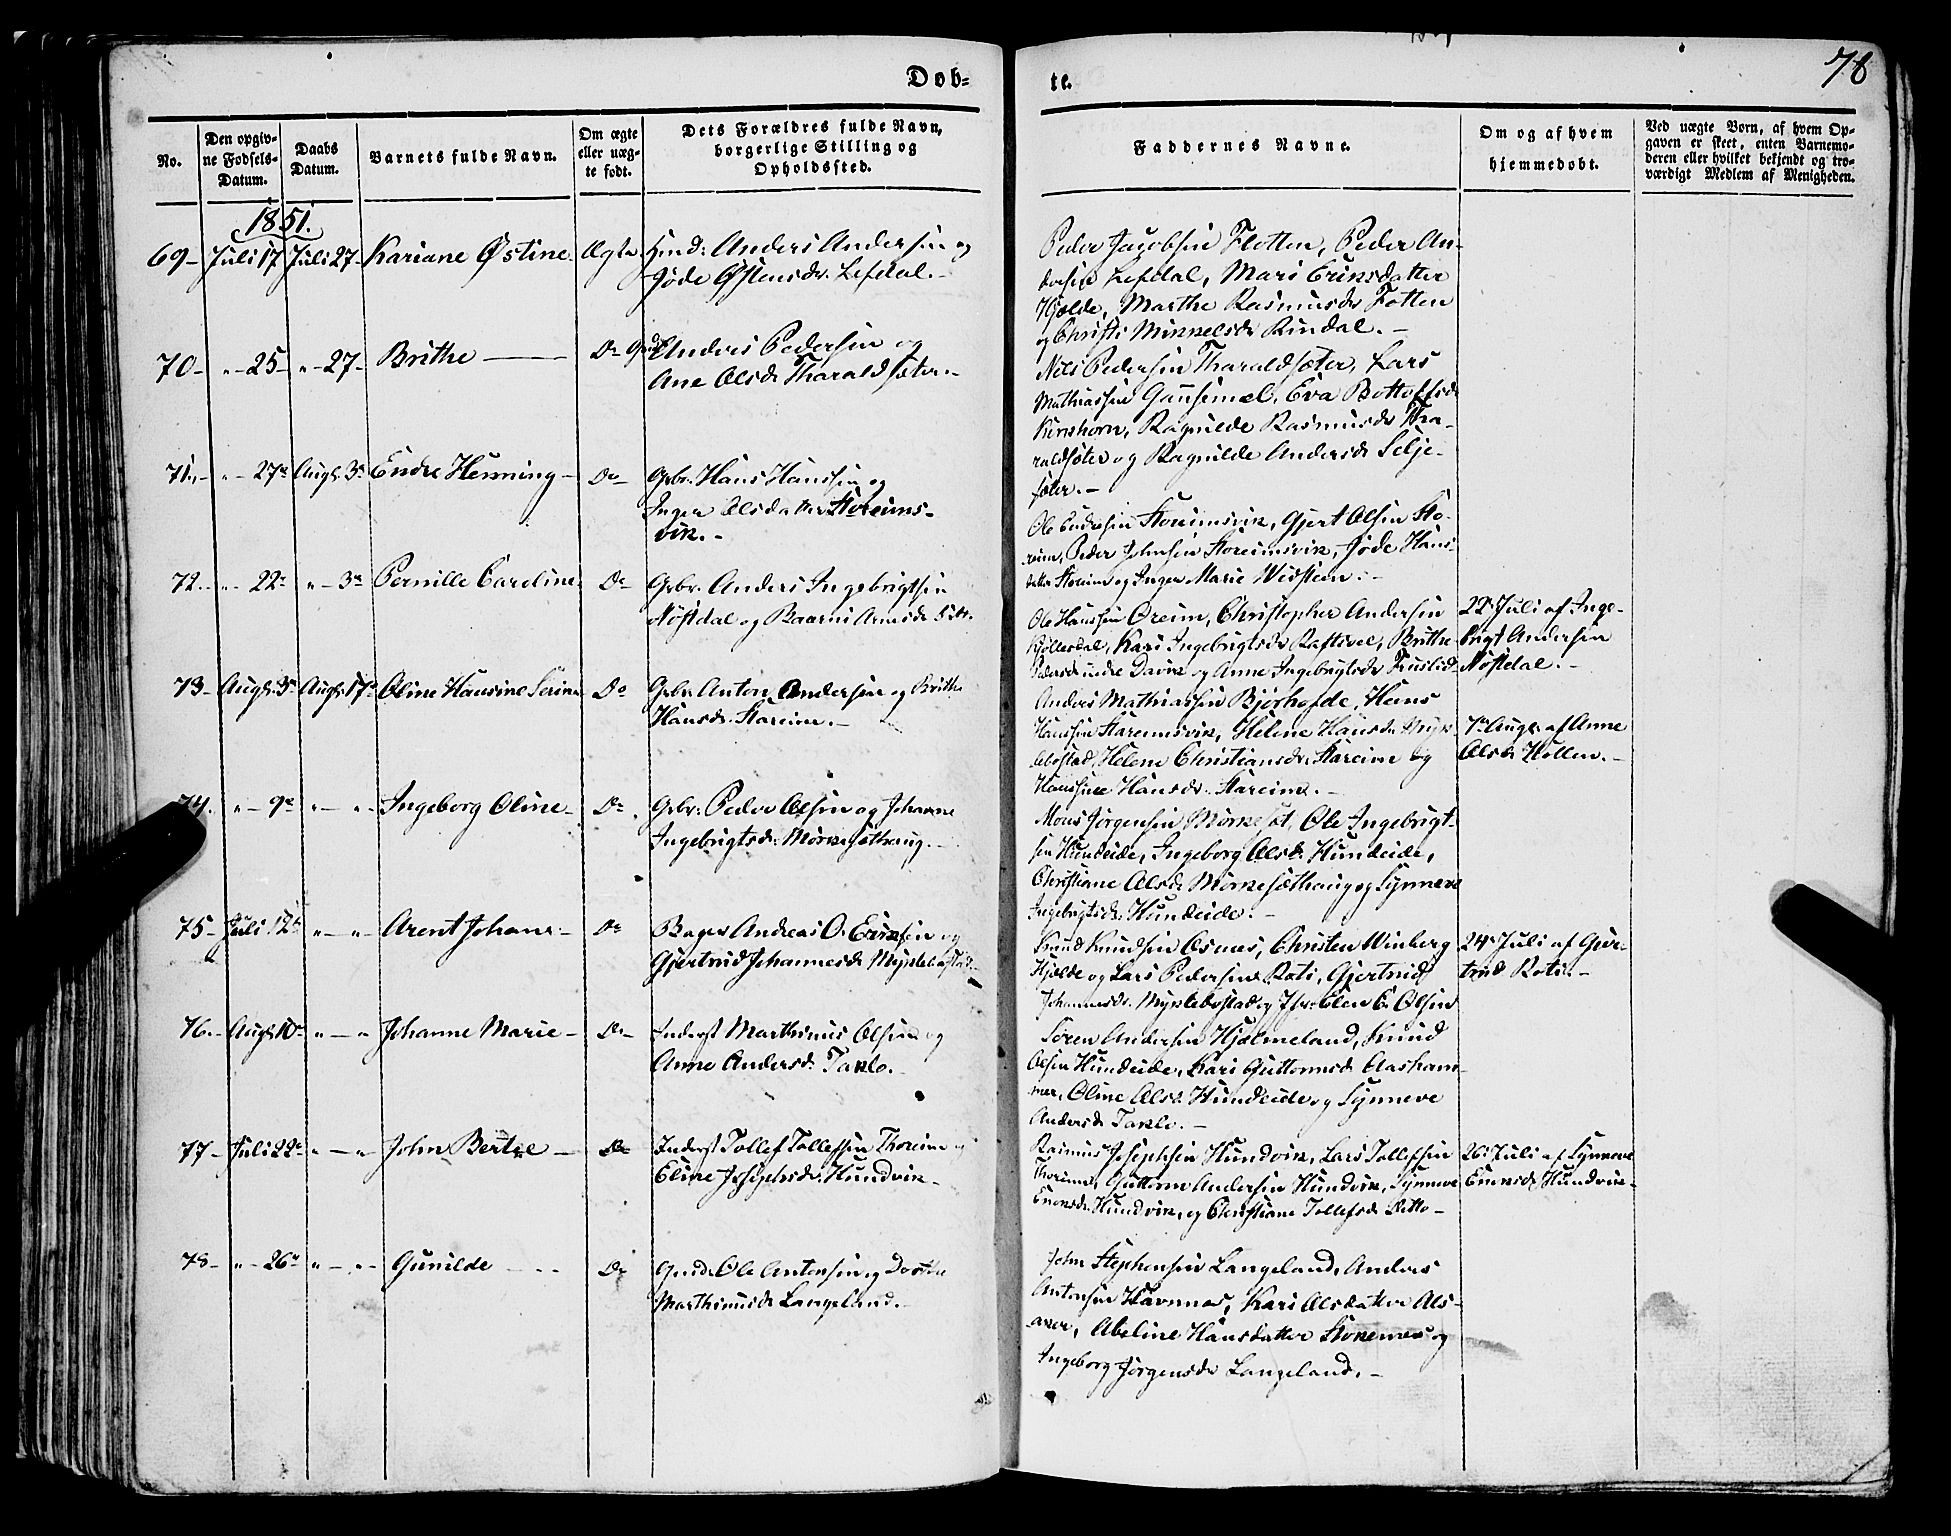 Døb-
te.
78
No.
Den opgiv-
ne Fødsels-
Datum.
Daabs
Datum.
Barnets fulde Navn.
Om ægte
eller uæg-
te født.
Dets Forældres fulde Navn,
borgerlige Stilling og
Opholdssted.
Faddernes Navne.
Om og af hvem
hjemmedøbt.
Ved uægte Børn, af hvem Op-
gaven er skeet, enten Barnemo-
deren eller hvilket bekjendt og tro-
værdigt Medlem af Menigheden.
1851.
69- Juli 17 Juli 27- Kariane Østine- Ægte Anders Andersen og
Gjøde Østensdr. Lefdal.-
Peder Jacobsen Flotten, Peder An-
dersen Lefdal, Mari Eriksdatter
Hjelde, Marthe Rasmusdr Totten
og Christi Mikkelsdr Rindal.-
70- "-25- "-27- Brithe Do Gmd. Anders Pedersen og
Ane Olsdr Tharaldsæter.-
Nils Pedersen Tharaldsæter, Lars
Mathiassen Gausemel, Eva Bottolfsdr
Kirkhorn, Ragnilde Rasmusdr Tha-
raldsæter og Ragnilde Andersdr Selje-
sæter.-
71.- "-27de Augt. 3de Endre Henning- Do- Gbr. Hans Hansen og
Inger Olsdatter Storeims-
vik.-
Ole Endresen Storeimsvik, Gjert Olsen Sto-
reim, Peder Johnsen Storeimsvik, Gjøde Hans-
datter Storeim og Inger Marie Widsteen.-
72.- "-22- "-3de Pernille Caroline Do- Gbr. Anders Ingebrigtsen
Nøstdal og Raarni Arnesdr ibd.
Ole Hanssen Oreim, Christopher Andersen
Kjøllesdal, Kari Ingebrigtsdr Raftevel, Brithe
Pedersdr indre Davik og Anne Ingebrigtsdr
22de Juli af Inge-
brigt Andersen
Nøstdal.-
73- Augt. 3de Augt. 17de Oline Hansine Do Gbr. Anton Andersen og Brithe
Hansdr. Stareim.-
Anders Mathiassen Bjørhovde, Hans
Hanssen Stareimsvik, Helene Hansdr Myk-
lebostad, Helene Christiansdr. Stareim og
Hanssine Hansdr. Stareim.-
7de Augt. af Anne
Olsdr Hollen.-
74. "-9de "-"- Ingeborg Oline- Do. Gbr: Peder Olsen og Johanne
Ingebrigtsdr. Mørkesæthaug.-
Mons Jørgensen Mørkesæt, Ole Ingebrigt-
sen Hundeide, Ingeborg Olsdr Hundeide,
Christiane Olsdr Mørkesæthaug og Synneve
Ingebrigtsdr. Hundeide.-
75- Juli 12te "-"- Arent Johan- Do Bager Andreas O. Eriksen og
Gjertrud Johannesdr Myklebostad.-
Knud Knudsen Osnes, Christen Winberg
Hjelde og Lars Pedersen Roti, Gjertrud
Johannesdr. Myklebostad og Jfr. Elen E. Olsen
24de Juli af Gjer-
trud Roti.-
76.- Augt. 10de "-" Johanne Marie- Do- Inderst Marthinus Olsen og
Anne Andersdr. Taklo.-
Søren Andersen Hjelmeland, Knud
Olsen Hundeide, Kari Guttormsdr Aasham-
mer, Oline Olsdr Hundeide og Synneve
Andersdr Taklo.-
77- Juli 22de "-"- John Bertel- Do- Inderst Tollef Tollefsen Thoreim og
Eline Josephsdr. Hundvik.-
Rasmus Josephsen Hundvik, Lars Tollefsen
Thoreim, Guttorm Andersen Hundvik, Synneve
Eriksdr. Hundvik, og Christiane Tollefsdr ditto-
26de Juli af Synneve
Eriksdr Hundvik-
78- "-26de "-"- Gunilde Do Gmd. Ole Antonsen og Dorthe
Marthinusdr Langeland.-
John Stephensen Langeland, Anders
Antonsen Havnnes, Kari Olsdatter Als-
aker, Abeline Hansdatter Stokenes og
Ingeborg Jørgensdr Langeland.-